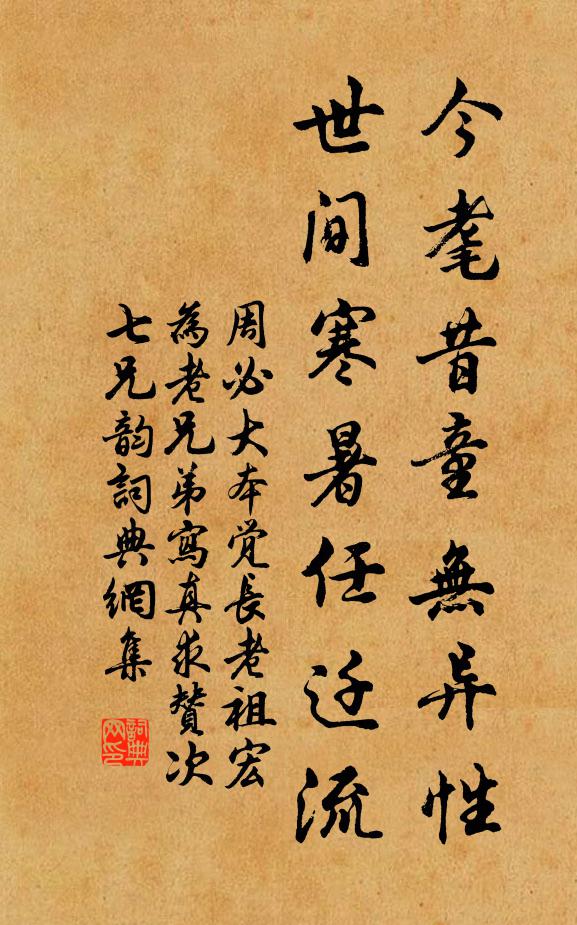 今耄昔童無异性
世间寒暑任迁流
周必大本觉長老祖宏
為老兄弟寫真求贊次
七兄韵詞典網集
詞典
网印